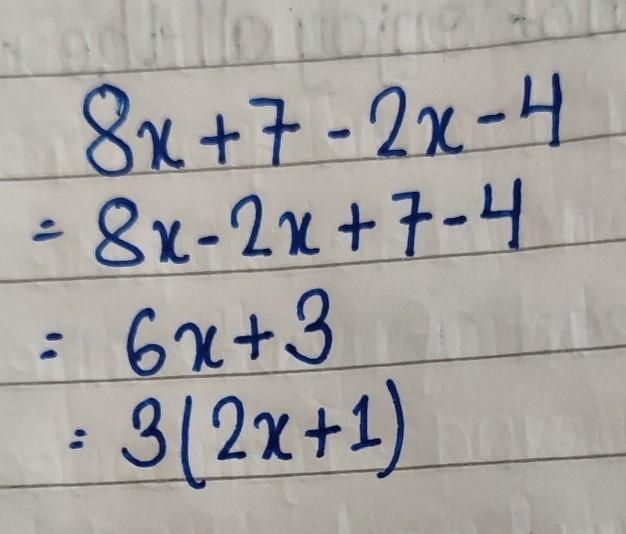 8x+7-2x-4
= 8x-2x+7-4
= 6x+3
= 3(2x+1)